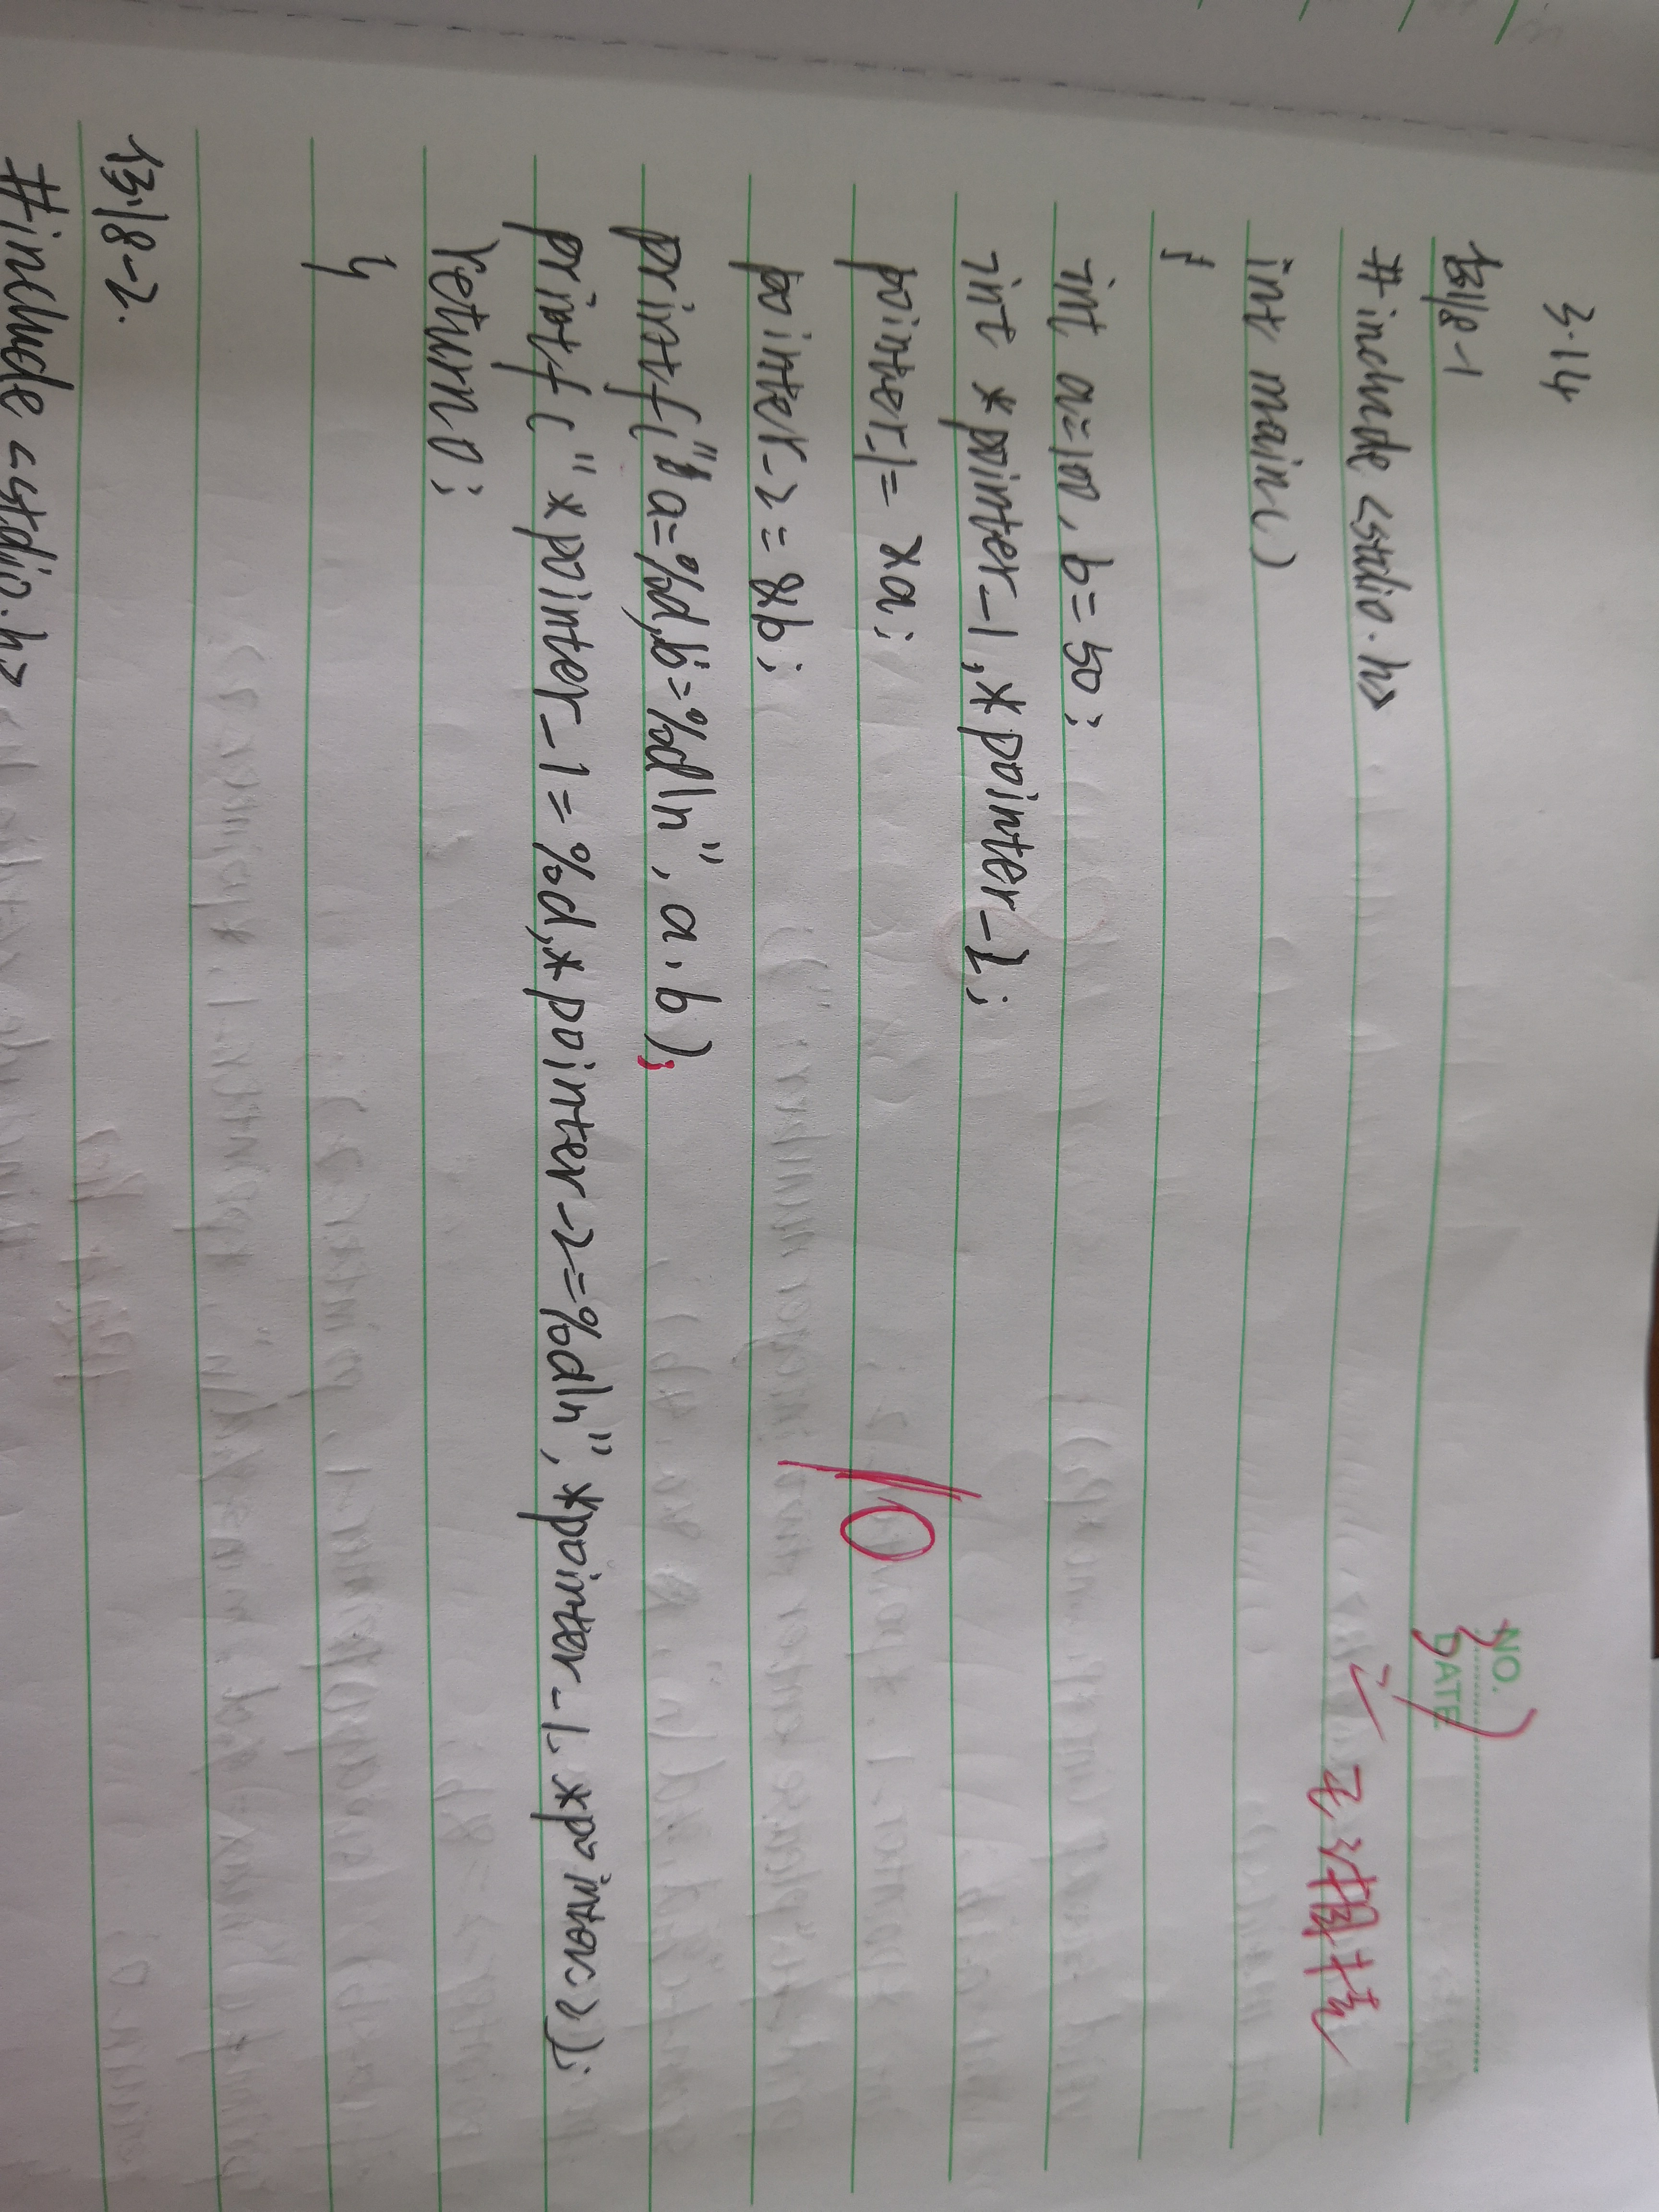 3.14
NO.
DATE
例8-1
#include <stdio.h>
int main()
{
int a=100, b=50;
int *pointer_1,*pointer_2;
pointer_1= &a;
pointer_2=&b;
printf("a=%d,b=%d\n", a,b);
printf("*pointer_1=%d,*pointer_2=%d\n", *pointer_1, *pointer_2);
return 0;
}
10
例8-2.
#include <stdio.h>